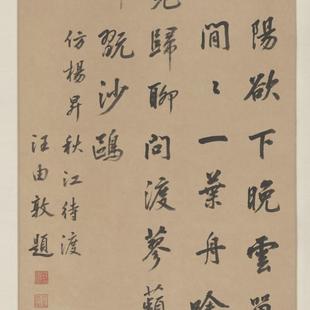 陽欲下晚雲
間〻一葉舟
歸聊問渡蓼蘋
翫沙鷗
仿楊昇秋江待渡
汪由敦題